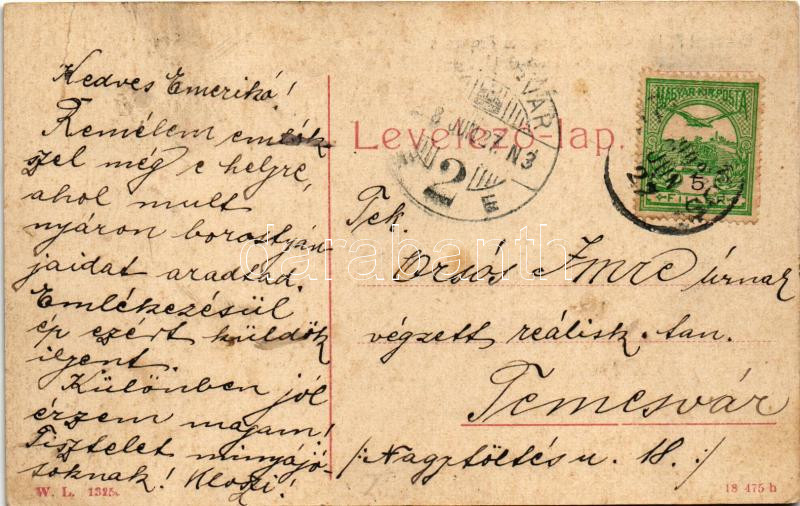 Kedves Emerikó!
Remélem emlék
szel még e helyre,
ahol mult
nyáron borostyán
jaidat arattad.
Emlékezésül
ép ezért küldök
ilyent.
Különben jól
érzem magam!
Tisztelet minyájó-
toknak!
Levelező-lap.
MAGYAR KIR. POSTA
5
FILLÉR
8 JUN. 27. N3
2
Tek.
Orsós Imre úrnak
végzett reálisk. tan.
Temesvár
/: Nagytöltés u. 18. :/
W. L. 1325.
18 475 h
darabanth.com